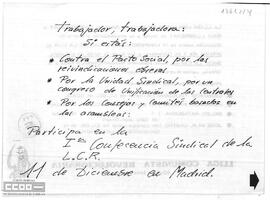 Trabajador, trabajadora:
Si estás:
• Contra el Pacto Social, por las
reivindicaciones obreras
• Por la Unidad Sindical, por un
congreso de Unificación de las Centrales
• Por los Consejos y Comités basados en
las asambleas:
Participa en la
I Conferencia Sindical de la
L.C.R.
11 de Diciembre en Madrid.
CCOO